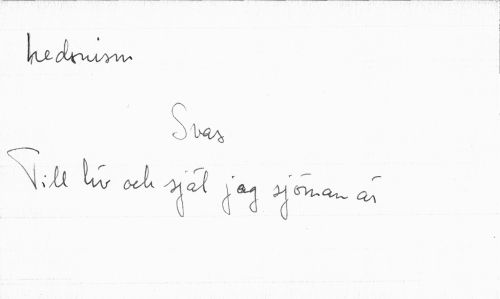 hedonism
Svas
Till liv och själ jag sjöman är